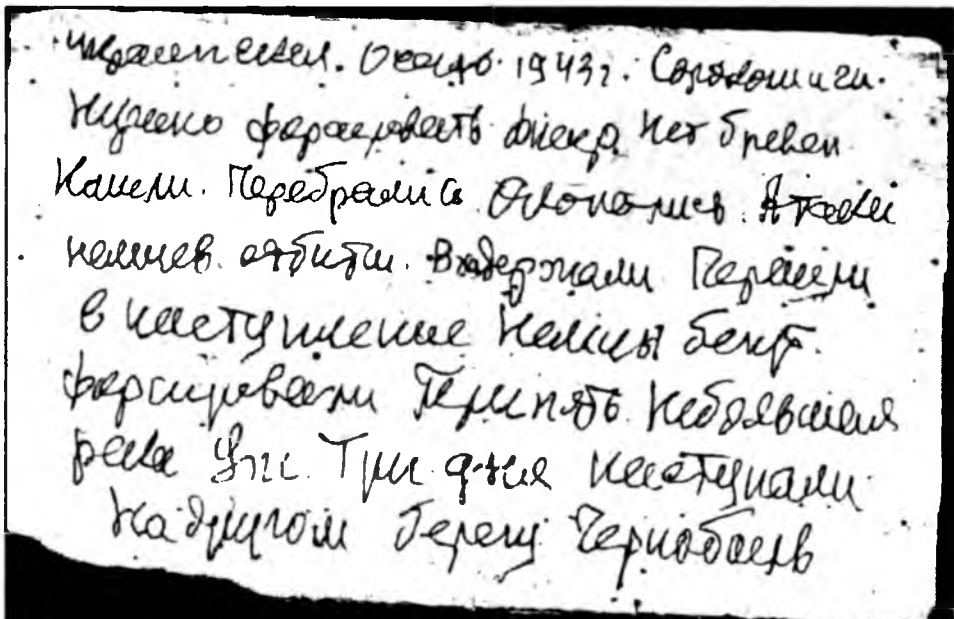 Около 1943г. Сорокошичи.
Нужно форсировать Днепр Нет бревен
Нашли. Перебрались Окопались. Атаки
немцев отбиты. Выдержали Перешли
в наступление Немцы бегут.
форсировали Припять Небольшая
река Уж. Три дня наступали
На другом берегу Чернобыль